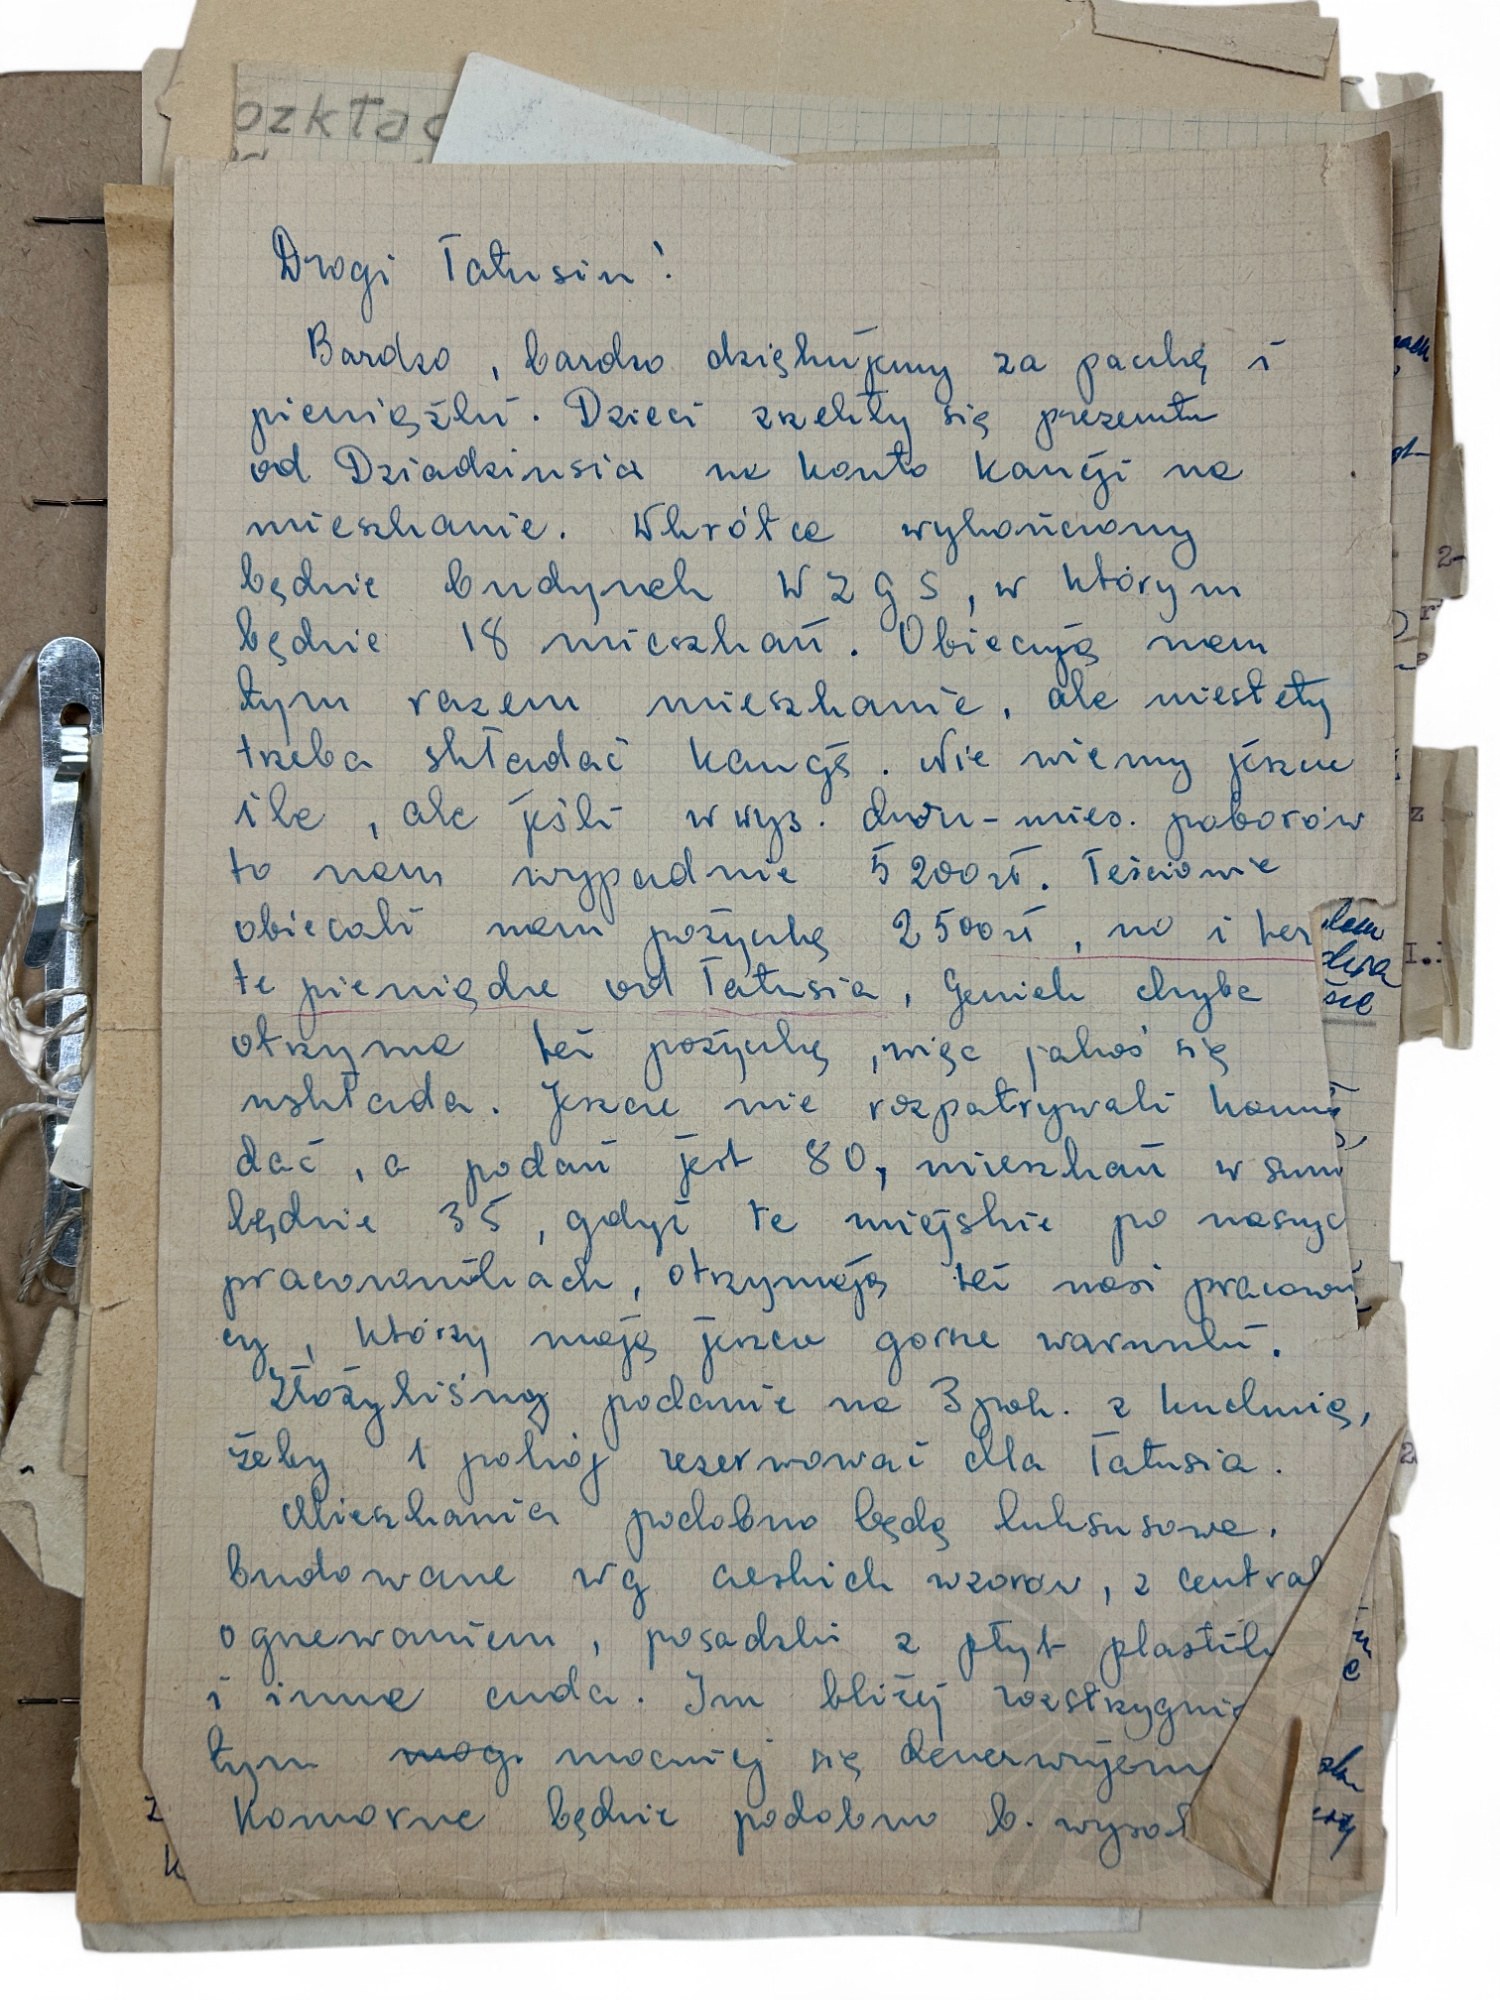 ozkład
Drogi Tatusiu!
Bardzo, bardzo dziękujemy za paczkę i
pieniążki. Dzieci zrzekły się prezentu
od Dziadziusia na konto kaucji na
mieszkanie. Wkrótce wykończony
będzie budynek WZGS, w którym
będzie 18 mieszkań. Obiecują nam
tym razem mieszkanie, ale niestety
trzeba składać kaucję. Nie wiemy jeszcze
ile, ale jeśli w wys. dwu-mies. poborów
to nam wypadnie 5200zł. Teściowie
obiecali nam pożyczkę 2500zł, no i ter
te pieniądze od Tatusia, Geniek chyba
otrzyma też pożyczkę, więc jakoś się
uskłada. Jeszcze nie rozpatrywali komu
dać, a podań jest 80, mieszkań w sum
będzie 35, gdyż te miejskie po naszyc
pracownikach, otrzymają też nasi pracowni
cy, którzy mają jeszcze gorsze warunki.
Złożyliśmy podanie na 3 pok. z kuchnią,
żeby 1 pokój rezerwować dla Tatusia.
Mieszkania podobno będą luksusowe,
budowane wg czeskich wzorów, z central
ogrzewaniem, posadzki z płyt plastik
i inne cuda. Im bliżej rozstrzygnię
tym mog. mocniej się denerwujem
Komorne będzie podobno b. wysok